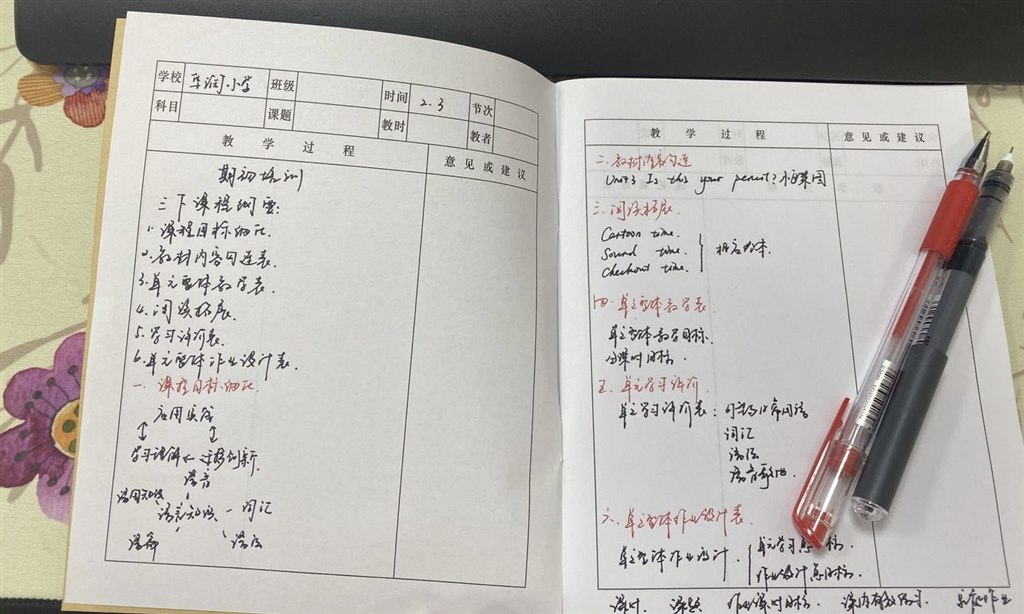 学校 华润小学 班级 时间 2.3 节次
科目 课题 教时 教者
教 学 过 程 意 见 或 建 议
期初培训
三下课程纲要:
1.课程目标细化.
2.教材内容勾连表.
3.单元整体教学表.
4.阅读拓展.
5.学习评价表.
6.单元整体作业设计表.
一、课程目标细化.
应用实践
学习理解 迁移创新
语音
语用知识
语言知识 词汇
语篇 语法
教 学 过 程 意 见 或 建 议
二、教材内容勾连
Unit3 Is this your pencil?
三、阅读拓展.
Cartoon time.
Sound time.
Checkout time.
四、单元整体教学表.
单元整体教学目标.
分课时目标.
五、单元学习评价
单元学习评价表: 日常用语
词汇
语法
语音
六、单元整体作业设计表.
单元整体作业设计. 单元学习总目标.
作业设计总目标.
课时. 课题 作业课时目标.